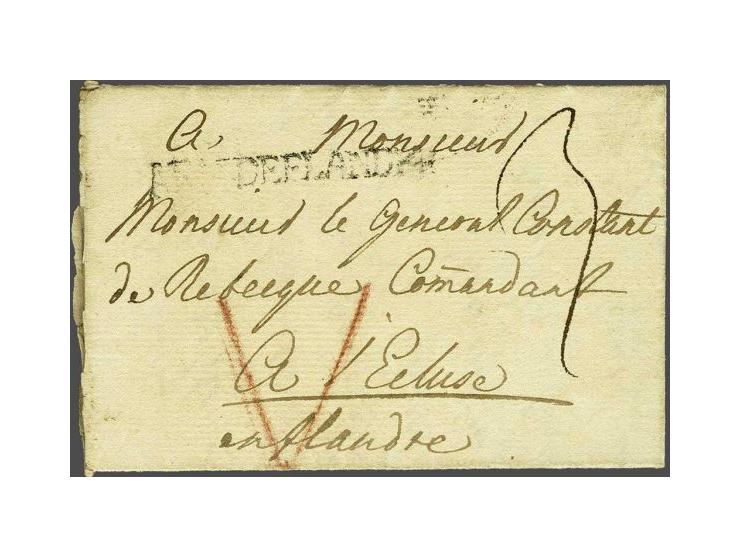 A, Monsieur
DEFLANDRE
Monsieur le General Constant
de Rebecque Com̄andant
A l'Ecluse
en flandre
3
V